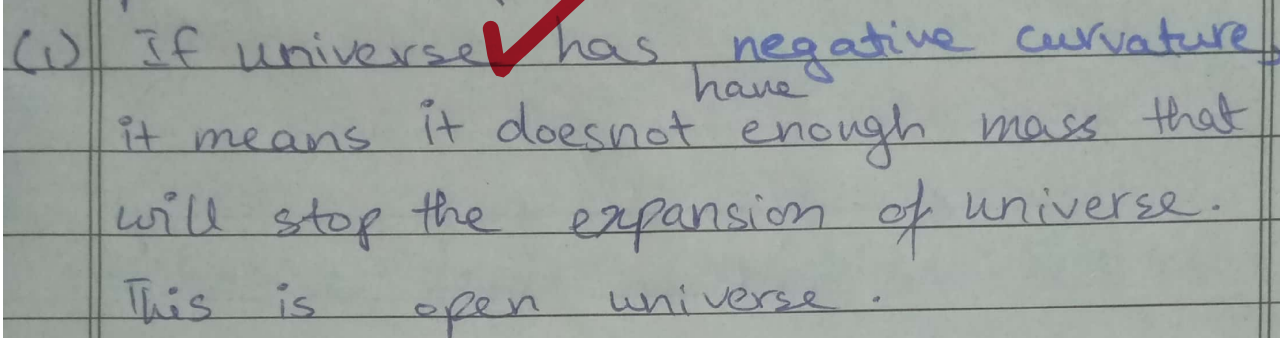 (i) If universe has negative curvature,
it means it doesnot have enough mass that
will stop the expansion of universe.
This is open universe.